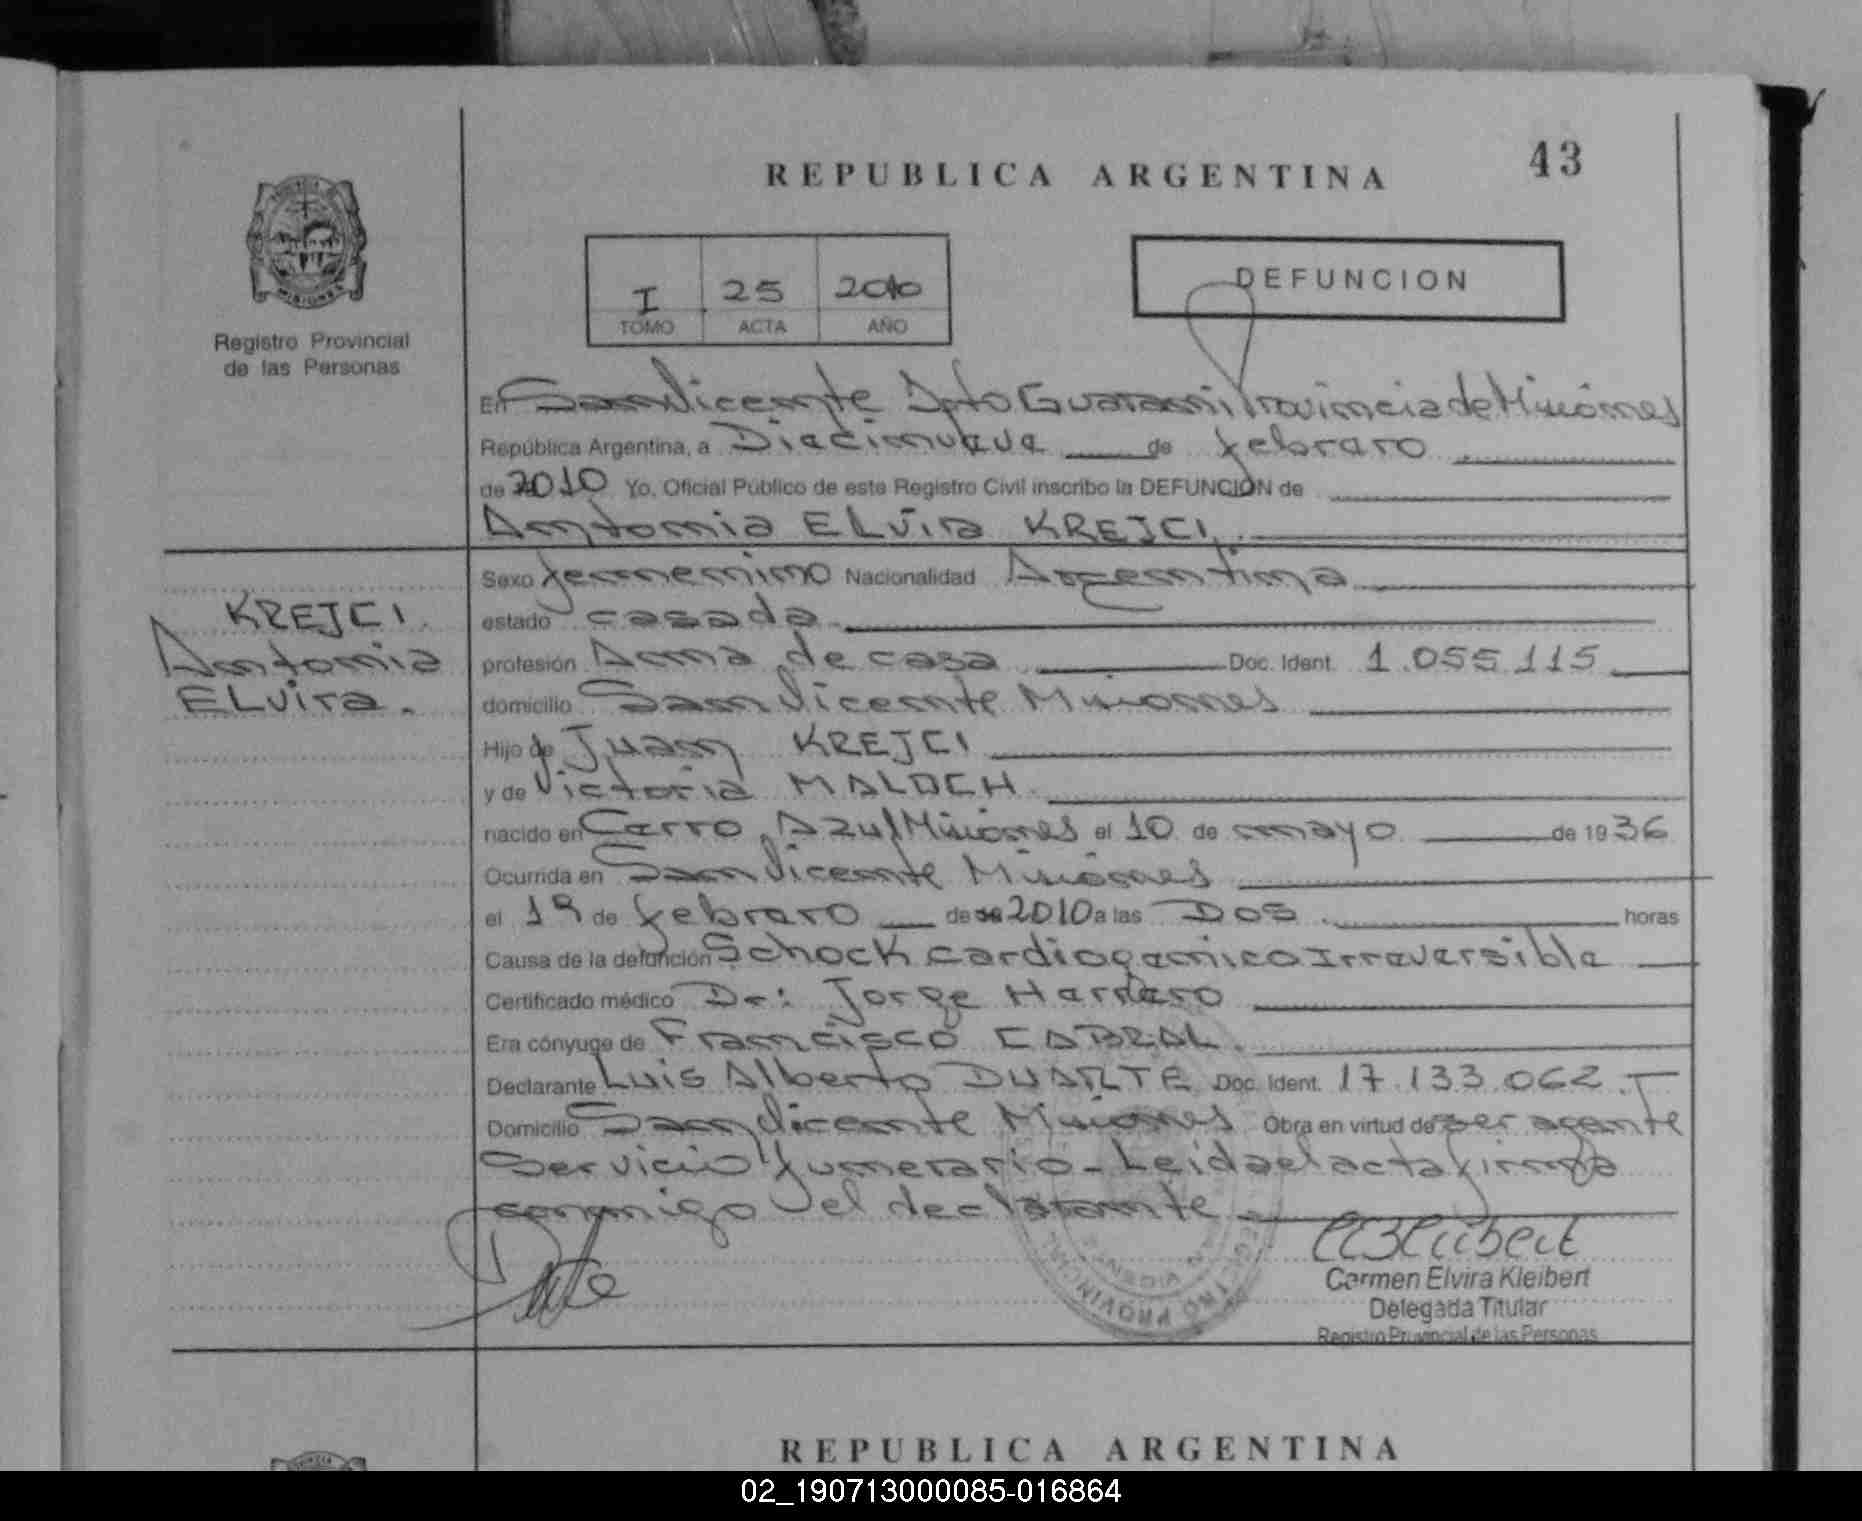 43
REPUBLICA ARGENTINA
I 25 2010
TOMO ACTA AÑO
DEFUNCION
MISIONES
Registro Provincial
de las Personas
En San Vicente Dpto Guarani Provincia de Misiones
República Argentina, a Diecinueve de febrero
de 2010 Yo, Oficial Público de este Registro Civil inscribo la DEFUNCIÓN de
Antonia ELvira KREJCI.
KREJCI.
Antonia
ELvira.
Sexo femenino Nacionalidad Argentina
estado casada
profesión Ama de casa Doc. Ident. 1.055.115
domicilio San Vicente Misiones
Hijo de Juan KREJCI
y de Victoria MALOCH
nacido en Cerro Azul Misiones el 10 de mayo de 1936
Ocurrida en San Vicente Misiones
el 19 de febrero de 2010 a las Dos. horas
Causa de la defunción Schock cardiogenico Irreversible
Certificado médico Dr: Jorge Herrero
Era cónyuge de Francisco CABRAL.
Declarante Luis Alberto DUARTE Doc. Ident. 17.133.062.
Domicilio San Vicente Misiones Obra en virtud de ser agente
Servicio funerario - Leida el acta firma
conmigo el declarante
Carmen Elvira Kleibert
Delegada Titular
Registro Provincial de las Personas
REPUBLICA ARGENTINA
02_190713000085-016864